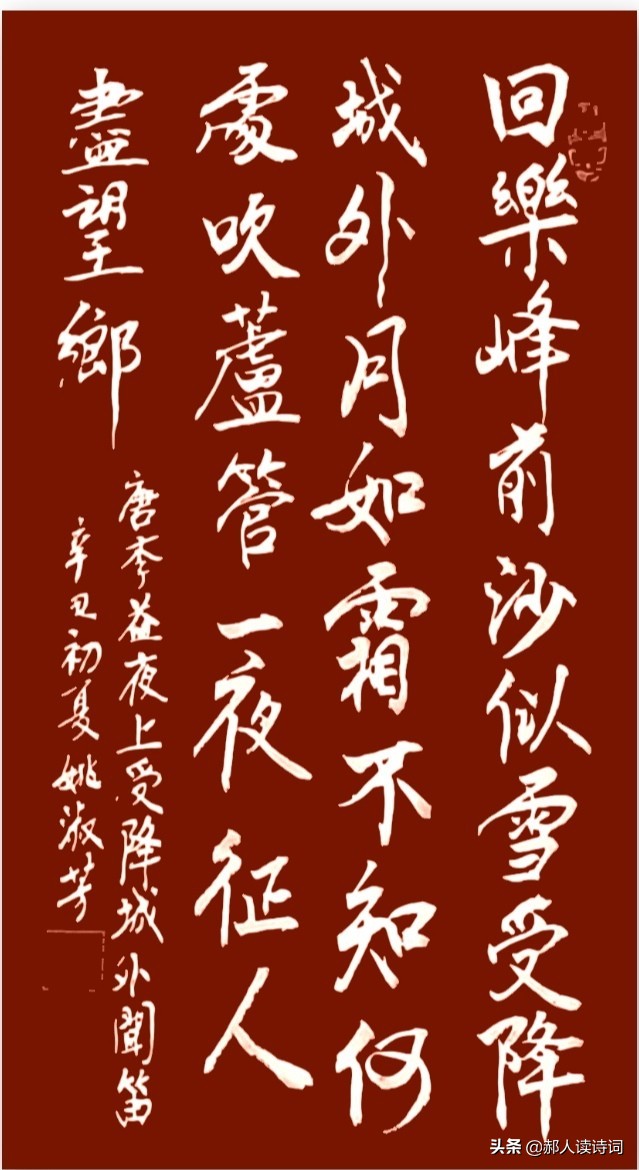 回樂峰前沙似雪受降
城外月如霜不知何
處吹蘆管一夜征人
盡望鄉
唐李益夜上受降城外聞笛
辛丑初夏姚淑芳
头条 @郝人读诗词